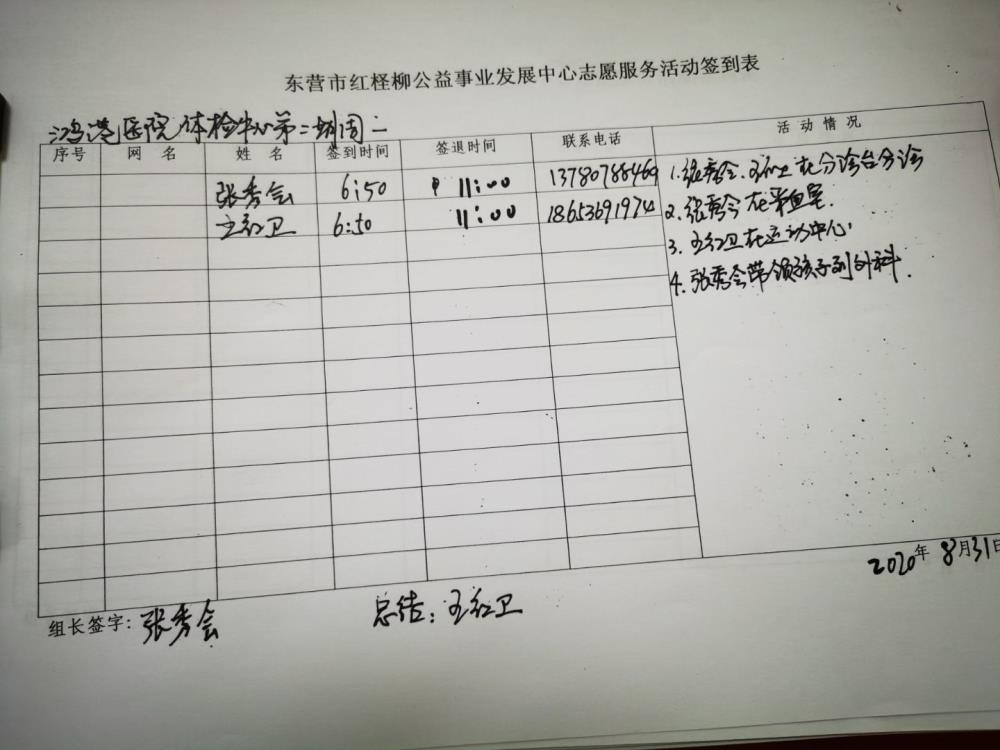 东营市红柽柳公益事业发展中心志愿服务活动签到表
鸿港医院体检中心第二期周二
序号 网 名 姓 名 签到时间 签退时间 联系电话 活 动 情 况
张秀会 6:50 11:00 13780788469
王红卫 6:50 11:00 18653691974
1.张秀会、王红卫在分诊台分诊
2.张秀会在采血室.
3.王红卫在运动中心.
4.张秀会带领孩子到外科.
2020年8月31日
组长签字: 张秀会 总结: 王红卫